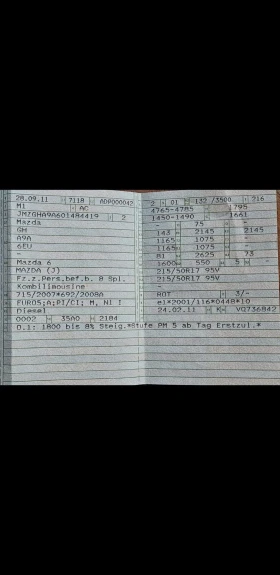 28.09.11 7118 ADP000042
M1 AC
JMZGHA9A601484419 2
Mazda
GH
A9A
6EU
-
Mazda 6
MAZDA (J)
Fz.z.Pers.bef.b. 8 Spl.
Kombilimousine
715/2007*692/2008A
EURO5;A;PI/CI; M, N1 I
Diesel
0002 35A0 2184
2 01 132 /3500 216
4765-4785 1795
1450-1490 1661
- 75 -
143 2145 2145
1165 1075 -
1165 1075 -
M1 2625 73
1600 550 5 -
215/50R17 95V
215/50R17 95V
-
ROT 3/-
e1*2001/116*0448*10
24.02.11 K VQ736842
O.1: 1800 bis 8% Steig.*Stufe PM 5 ab Tag Erstzul.*